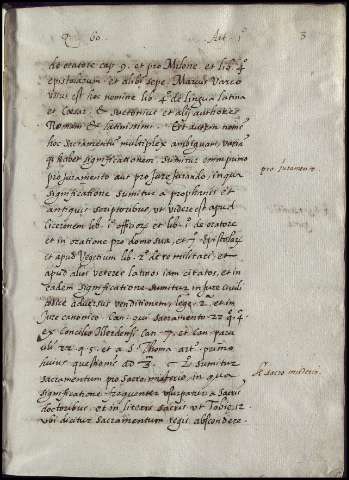 Q. 60. Art. 1º 3
de oratore cap 9. et pro Milone. et lib. 4º
epistolarum. et alibi sepe. Marcus Varro
usus est hoc nomine lib. 4º de lingua latina
et Cæsar, & Suetonius et alij authores
Romani & latinissimi. Est autem nomen
hoc Sacramentum multiplex ambiguum, varia
qz habet significationem. Sumitur enim primo
pro juramento aut pro jure jurando, in qua
significatione sumitur a prophanis et
antiquis scriptoribus, ut videre est apud
Ciceronem lib. 1º officiorum et lib. 1º de oratore
et in oratione pro domo sua, et 7 epistolarum
et apud Vegetium lib. 2º de re militari, et
apud alios veteres latinos iam citatos, et in
eadem significatione sumitur in jure civili
codice adversus venditionem, lege 2ª et in
jure canonico. Can. qui sacramento 22 q. 4ª
ex Concilio Ilerdensi Can. 7. et Can.
22. q. 5. et a S. Thoma art. primo
huius questionis ad 3. 2º sumitur
sacramentum pro sacro misterio, in qua
significatione frequenter usurpatur a sacris
doctoribus, et in literis sacris ut Tobie. 12
ubi dicitur sacramentum regis abscondere
pro juramento.
Pro sacro misterio.